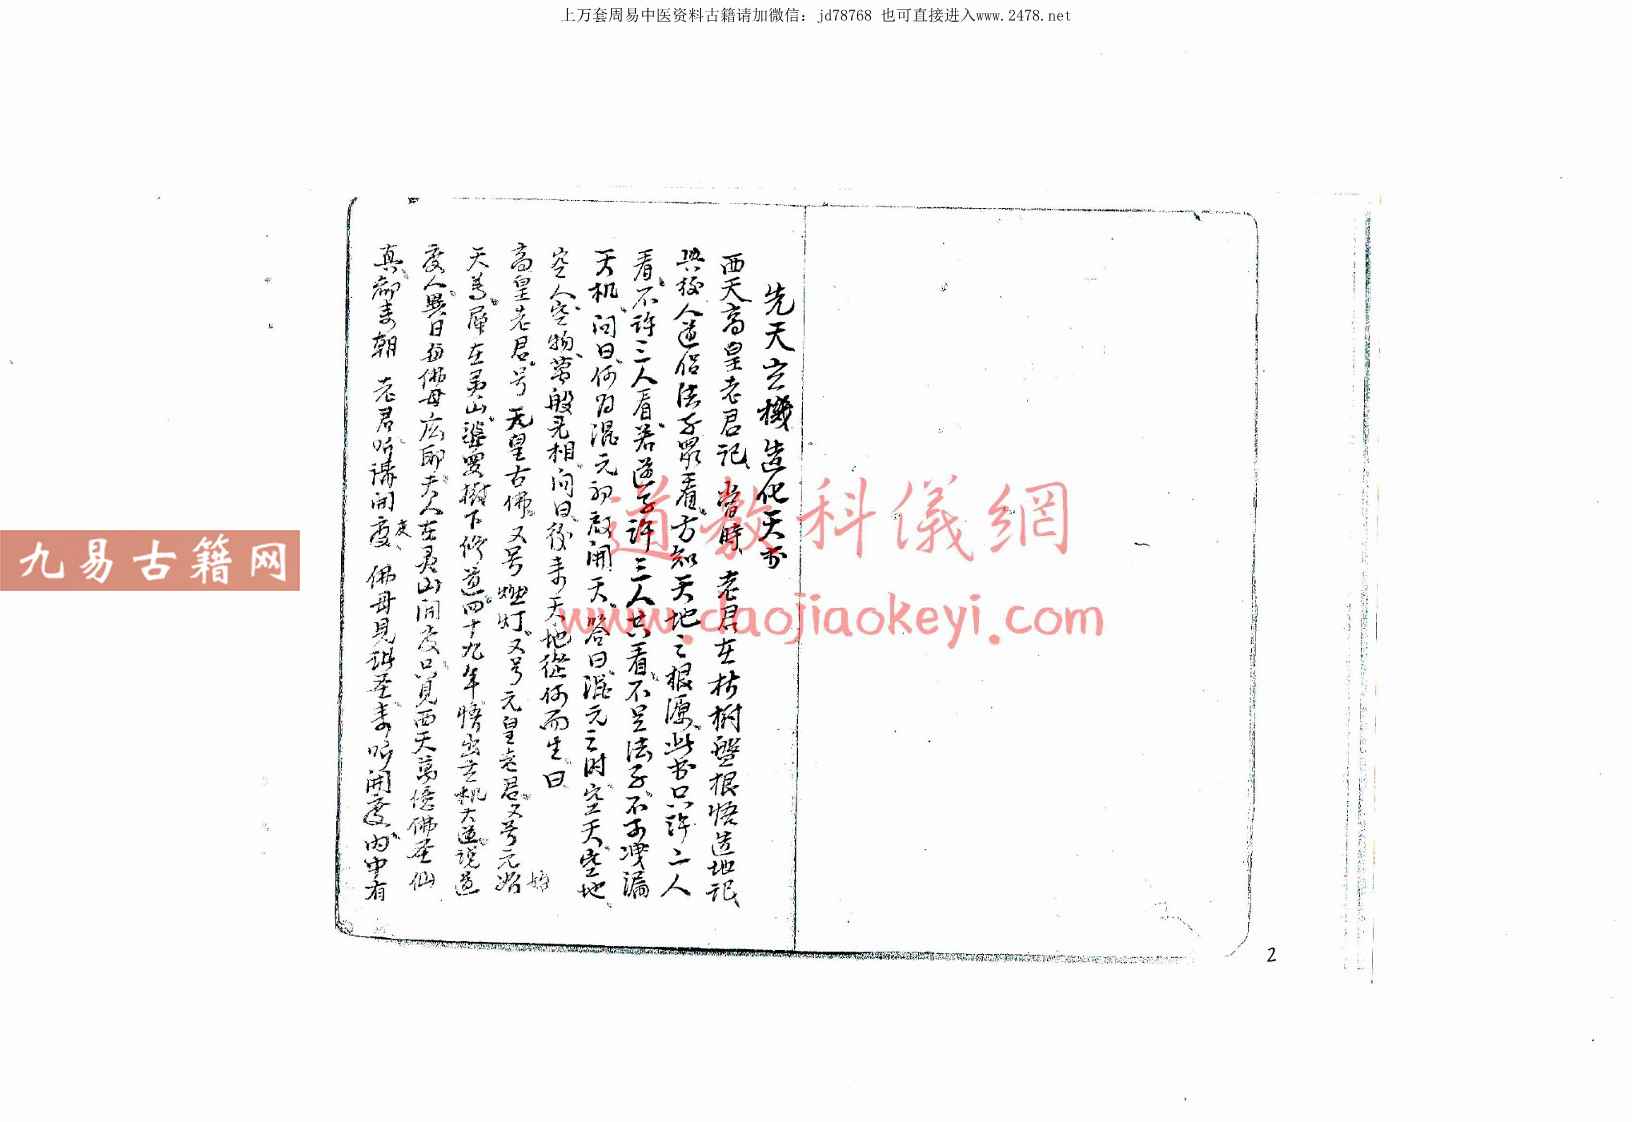 上万套周易中医资料古籍请加微信: jd78768 也可直接进入www.2478.net
先天立機造化天书
西天高皇老君记、当時、老君在枯樹盤根悟造地记、
與後人道侣法子眾看、方知天地之根源、此书只许二人
看、不许三人看、若道子许三人共看、不是法子、不可洩漏
天机、问曰、何为混元初啟開天、答曰、混元之时、空天空地、
空人空物、萬般无相、问曰、後来天地從何而生曰
高皇老君、号无皇古佛、又号燃灯、又号元皇老君、又号元始
天尊、在灵山婆娑樹下修道四十九年悟出玄机大道说道
度人異日佛母夫人在灵山開度只見西天萬億佛圣仙
真都来朝 老君听講開度、佛母見諸圣来听開度、内中有
道教科儀網
www.daojiaokeyi.com
九易古籍网
2